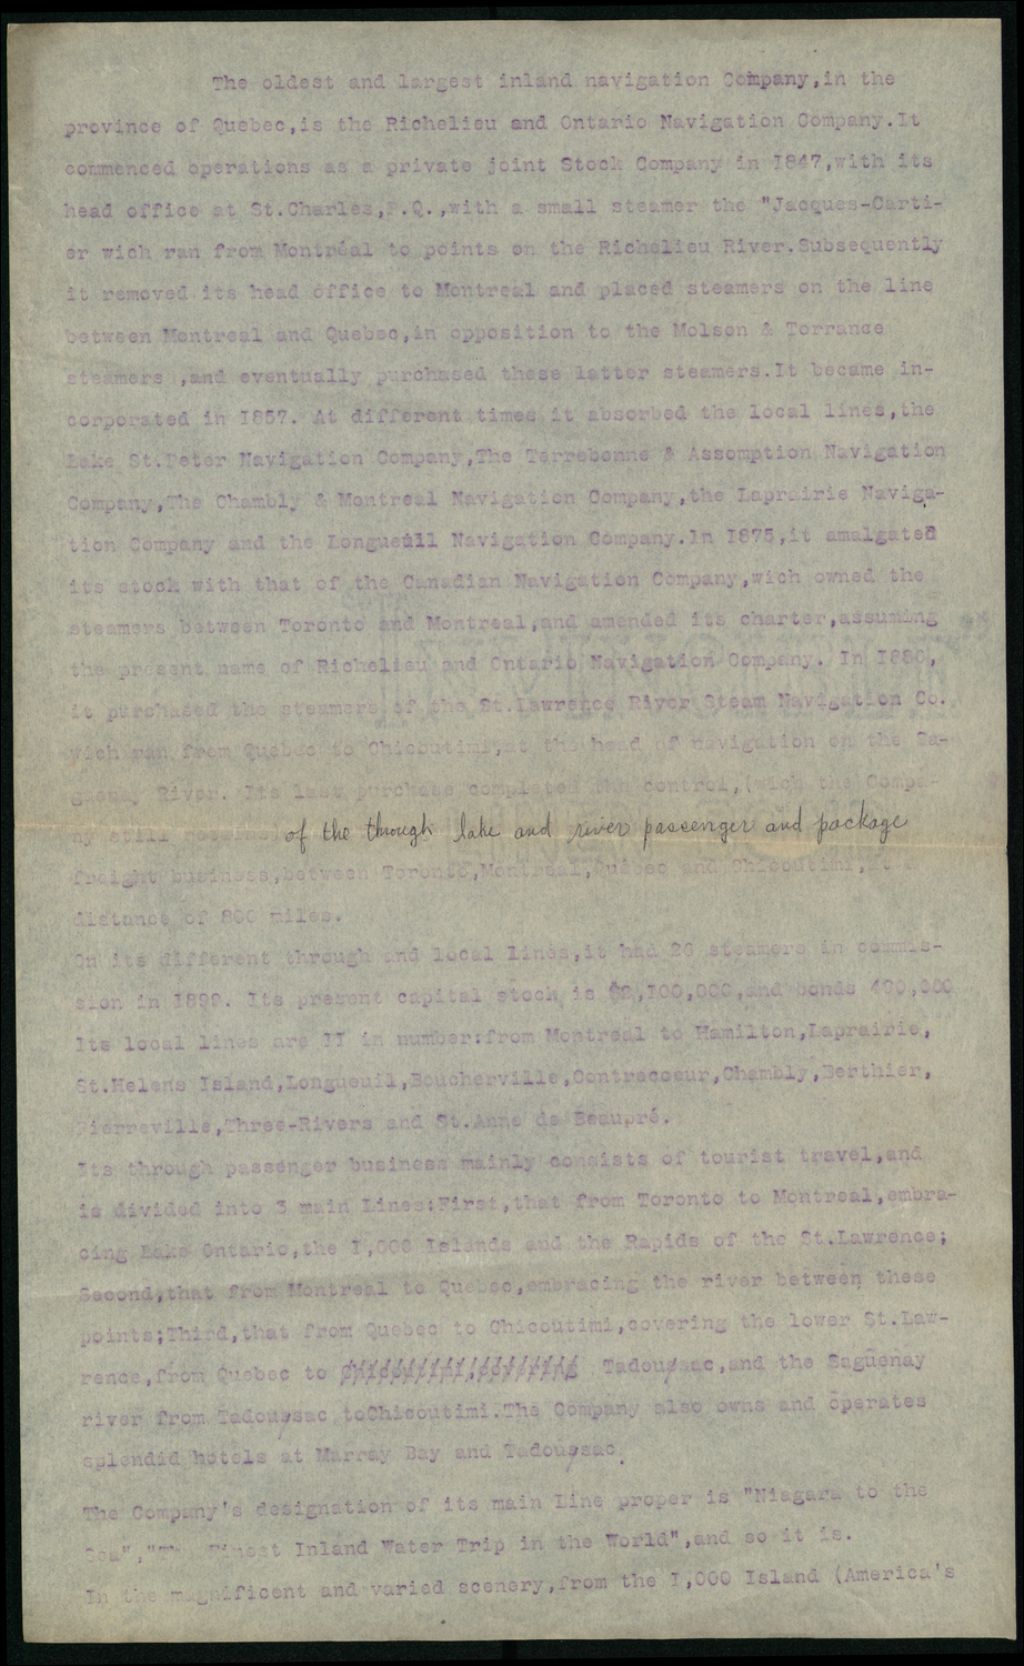 The oldest and largest inland navigation Company,in the
province of Quebec,is the Richelieu and Ontario Navigation Company.It
commenced operations as a private joint Stock Company in I847,with its
head office at St.Charles,P.Q.,with a small steamer the "Jacques-Carti-
er wich ran from Montréal to points on the Richelieu River.Subsequently
it removed its head office to Montreal and placed steamers on the line
between Montreal and Quebec,in opposition to the Molson & Torrance
steamers ,and eventually purchased these latter steamers.It became in-
corporated in I857. At different times it absorbed the local lines,the
Lake St.Peter Navigation Company,The Terrebonne & Assomption Navigation
Company,The Chambly & Montreal Navigation Company,the Laprairie Naviga-
tion Company and the Longueuill Navigation Company.In I875,it amalgated
its stock with that of the Canadian Navigation Company,wich owned the
steamers between Toronto and Montreal,and amended its charter,assuming
the present name of Richelieu and Ontario Navigation Company. In I886,
it purchased the steamers of the St.Lawrence River Steam Navigation Co.
wich ran from Quebec to Chicoutimi,at the head of navigation on the Sa-
guenay River. Its last purchase completed the control,(wich the Compa-
ny still of the through lake and river passenger and package
freight business,between Toronto,Montreal,Quebec and Chicoutimi,
distance of 800 miles.
On its different through and local lines,it had 26 steamers in commis-
sion in I899. Its present capital stock is $2,I00,000,and bonds 400,000
Its local lines are II in number:from Montreal to Hamilton,Laprairie,
St.Helens Island,Longueuil,Boucherville,Contrecoeur,Chambly,Berthier,
Pierreville,Three-Rivers and St.Anne de Beaupré.
Its through passenger business mainly consists of tourist travel,and
is divided into 3 main Lines:First,that from Toronto to Montreal,embra-
cing Lake Ontario,the I,000 Islands and the Rapids of the St.Lawrence;
Second,that from Montreal to Quebec,embracing the river between these
points;Third,that from Quebec to Chicoutimi,covering the lower St.Law-
rence,from Quebec to Tadoussac,and the Saguenay
river from Tadoussac toChicoutimi.The Company also owns and operates
splendid hotels at Murray Bay and Tadoussac.
The Company's designation of its main Line proper is "Niagara to the
Sea","The Finest Inland Water Trip in the World",and so it is.
In the magnificent and varied scenery,from the I,000 Island (America's